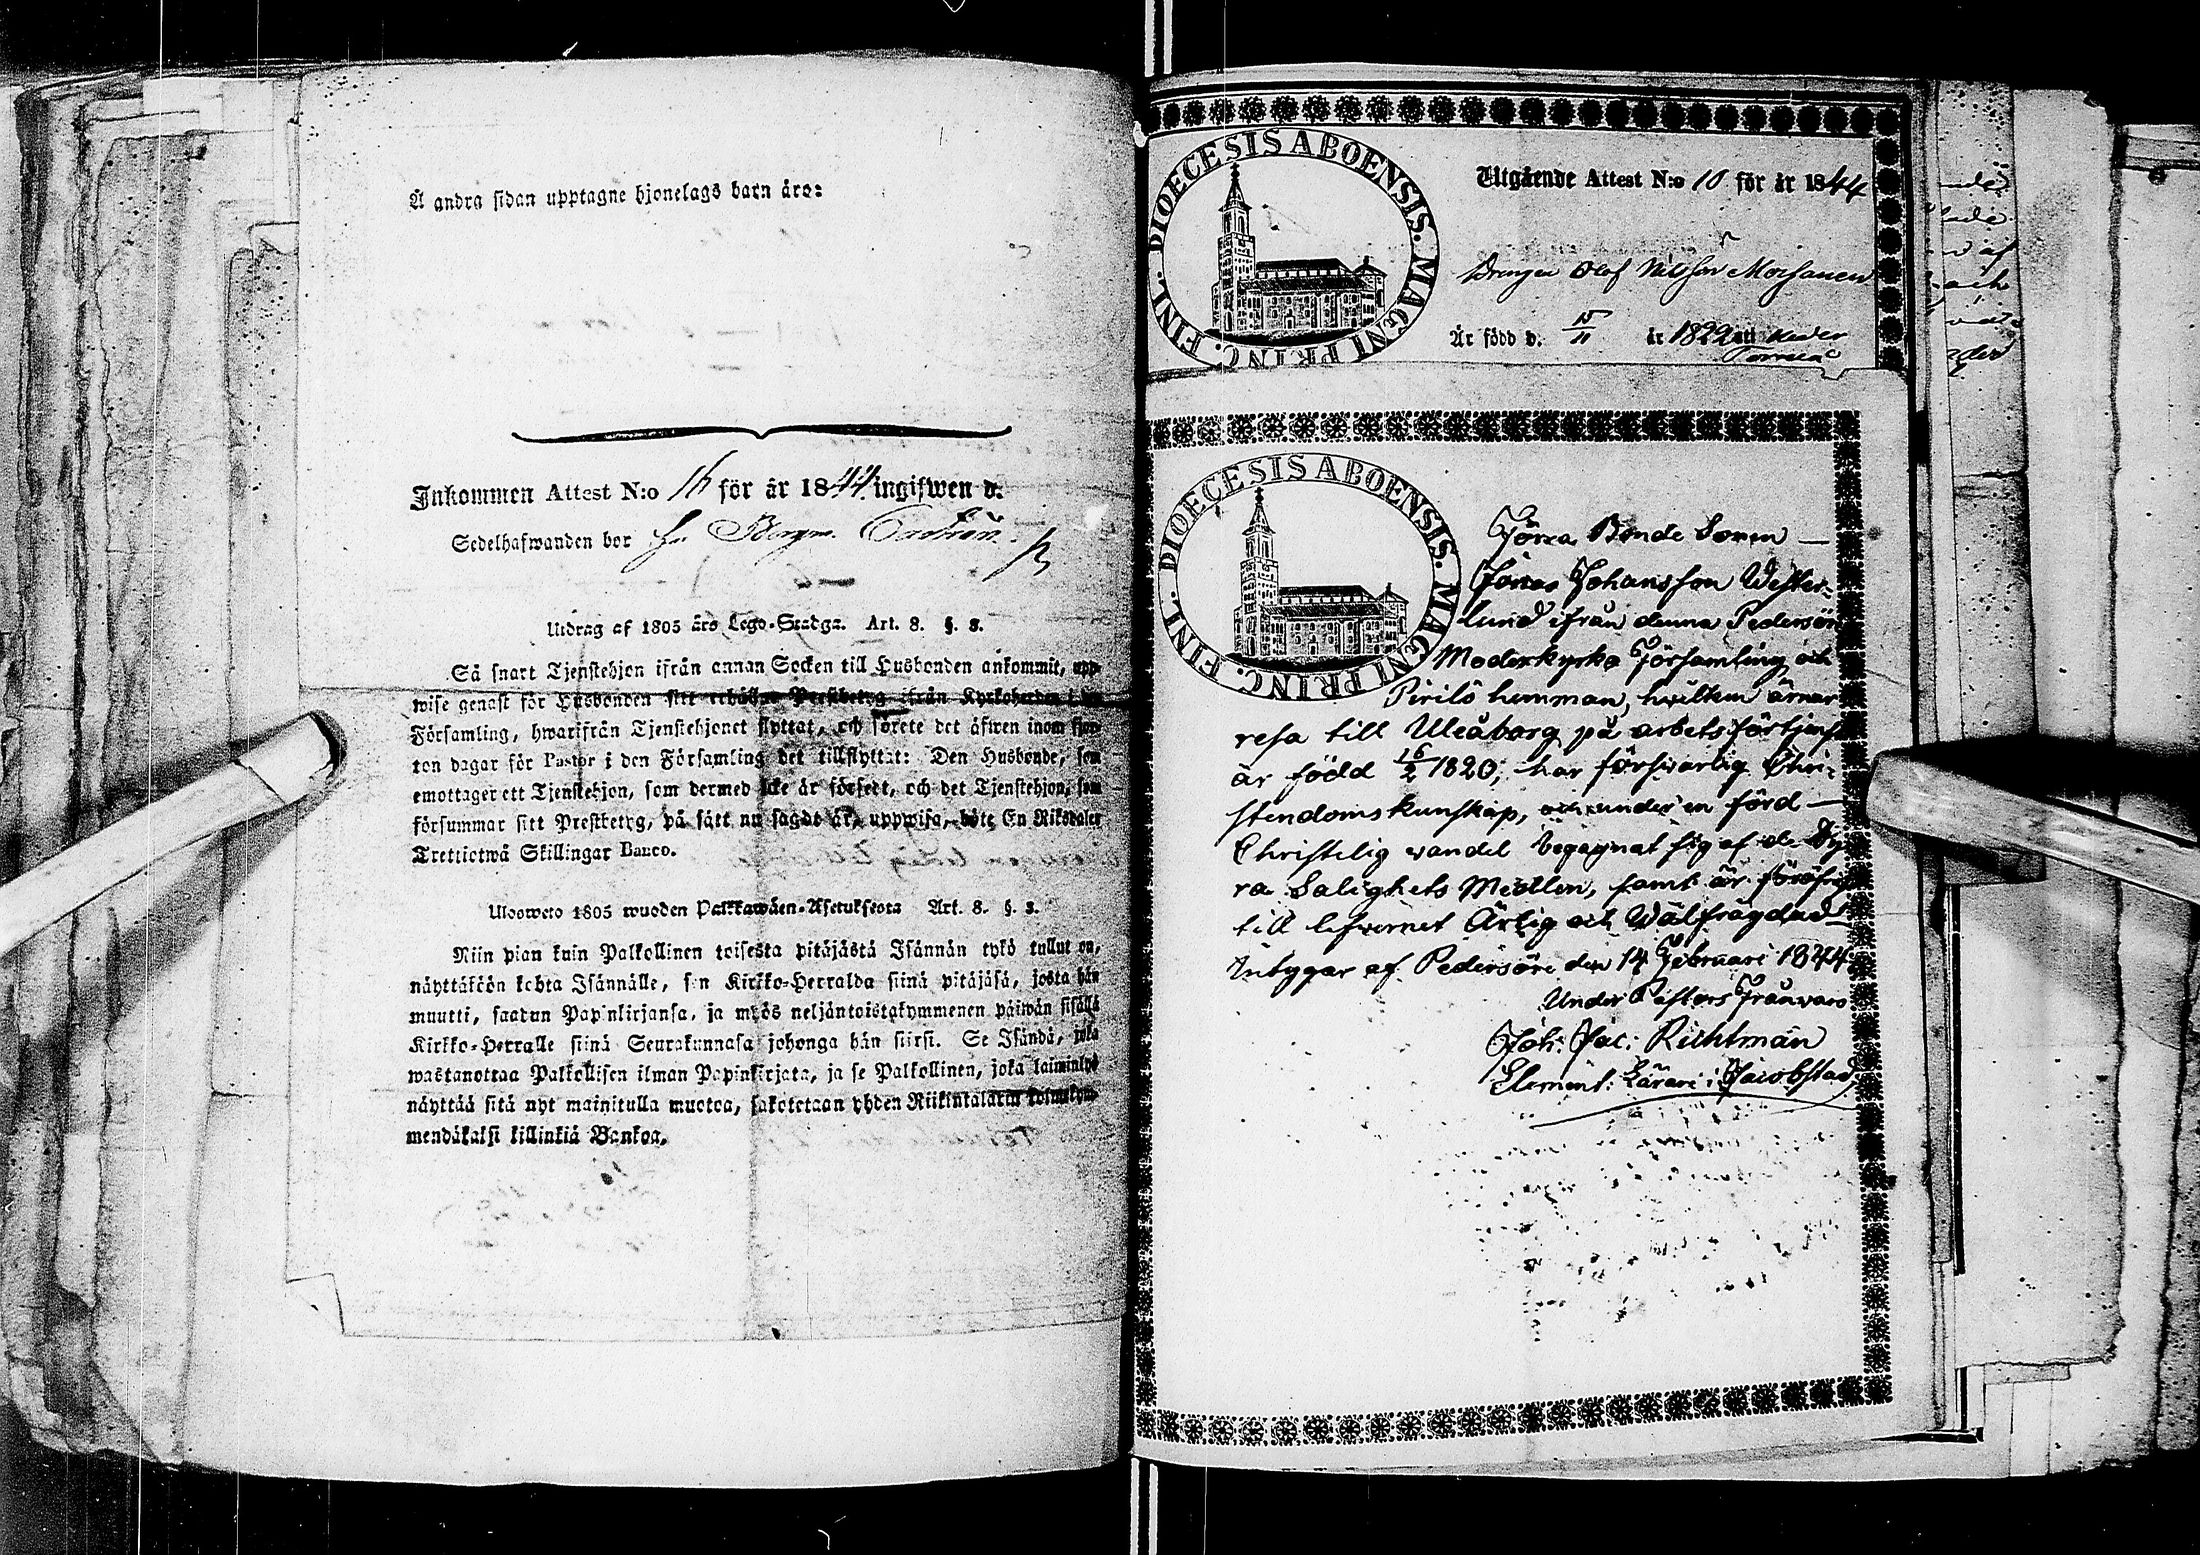 Å andra sidan upptagne hjonelags barn äro:
Inkommen Attest N:o 16 för år 1844 ingifwen d.
Sedelhafwanden bor
Utdrag af 1805 års Lego-Stadga. Art. 8. §. 3.
Så snart Tjenstehjon ifrån annan Socken till Husbonden ankommit, upp-
wise genast för Husbonden sitt erhållne Prestbetyg ifrån Kyrkoherden i den
Församling, hwarifrån Tjenstehjonet flyttat, och förete det äfwen inom fjor-
ton dagar för Pastor i den Församling det tillflyttat: Den Husbonde, som
emottager ett Tjenstehjon, som dermed icke är försedt, och det Tjenstehjon, som
försummar sitt Prestbetyg, på sätt nu sagdt är, uppwisa, böte En Riksdaler
Trettiotwå Skillingar Banco.
Ulosweto 1805 wuoden Palkkawäen-Asetuksesta Art. 8. §. 3.
Niin pian kuin Palkollinen toisesta pitäjästä Isännän tykö tullut on,
näyttäköön kohta Isännälle, sen Kirkko-Herralda siinä pitäjäsä, josta hän
muutti, saadun Papinkirjansa, ja myös neljäntoistakymmenen päiwän sisällä
Kirkko-Herralle siinä Seurakunnasa johonga hän siirsi. Se Isändä, joka
wastanottaa Palkollisen ilman Papinkirjata, ja se Palkollinen, joka laiminlyö
näyttää sitä nyt mainitulla muotoa, sakotetaan yhden Riikinkalarin kolmekym-
mendäkaksi killinkiä Bankoa.
DIOECESIS ABOENSIS. MAGNI PRINC. FINL.
Utgående Attest N:o 10 för år 1844
Drengen Olof Nilsson
Är född d. 15/11 år 1822 uti Neder
Torneå
DIOECESIS ABOENSIS. MAGNI PRINC. FINL.
Förra Bonde Sonen —
Jonas Johansson Wester-
lund ifrån denna Pedersöre
Moderkyrko Församling och
Pirilö hemman, hwilken ärnar
resa till Uleåborg på arbetsförtjenst
är född 16/2 1820; har förswarlig Chri-
stendomskunskap, och under en förd —
Christelig wandel begagnat sig af de Dy-
ra Salighets Medlen, samt är föröfrigt
till lefwernet Ärlig och Wälfrägdad —
intygar af Pedersöre den 14 Februari 1844.
Under Pastors Frånvaro
Joh: Jac: Richtman
Element: Lärare i Jacobstad